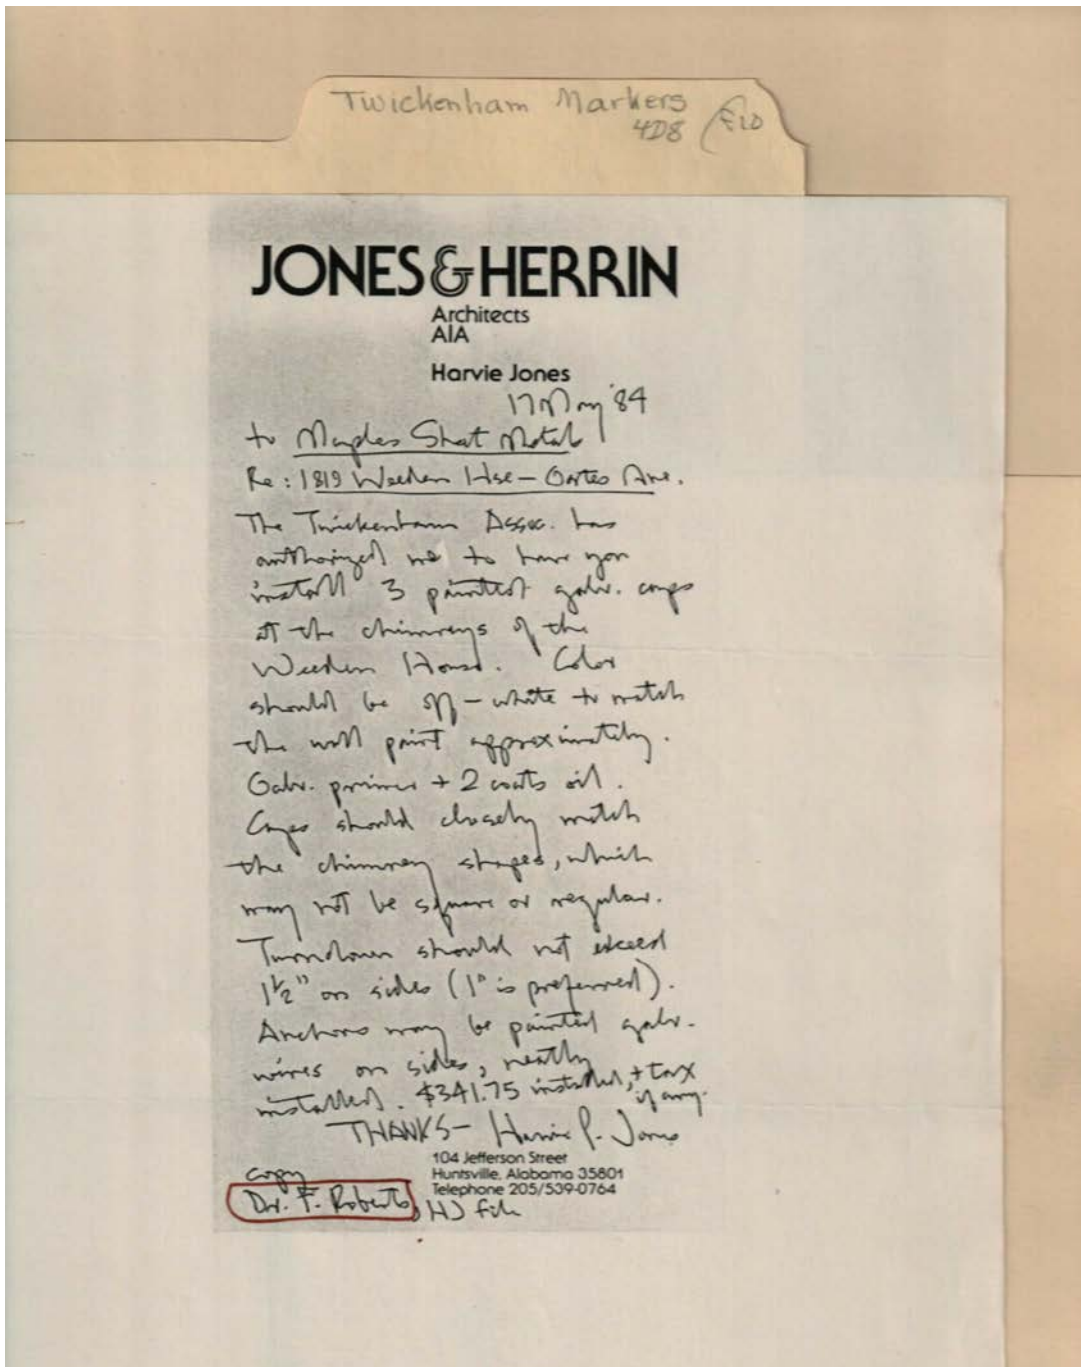 Twickenham Markers
4D8
JONES & HERRIN
Architects
AIA
Harvie Jones
17 May '84
to Maples Sheet Metal
Re: 1819 Weeden Hse - Gates Ave.
The Twickenham Assoc. has
authorized me to have you
install 3 painted galv. caps
at the chimneys of the
Weeden House. Color
should be off-white to match
the wall paint approximately.
Galv. primer + 2 coats oil.
Caps should closely match
the chimney shapes, which
may not be square or regular.
Turndown should not exceed
1½" on sides (1" is preferred).
Anchors may be painted galv.
wires on sides, neatly
installed. $341.75 installed, + tax
if any.
THANKS - Harvie P. Jones
104 Jefferson Street
Huntsville, Alabama 35801
Telephone 205/539-0764
copy
Dr. F. Roberts, HJ file